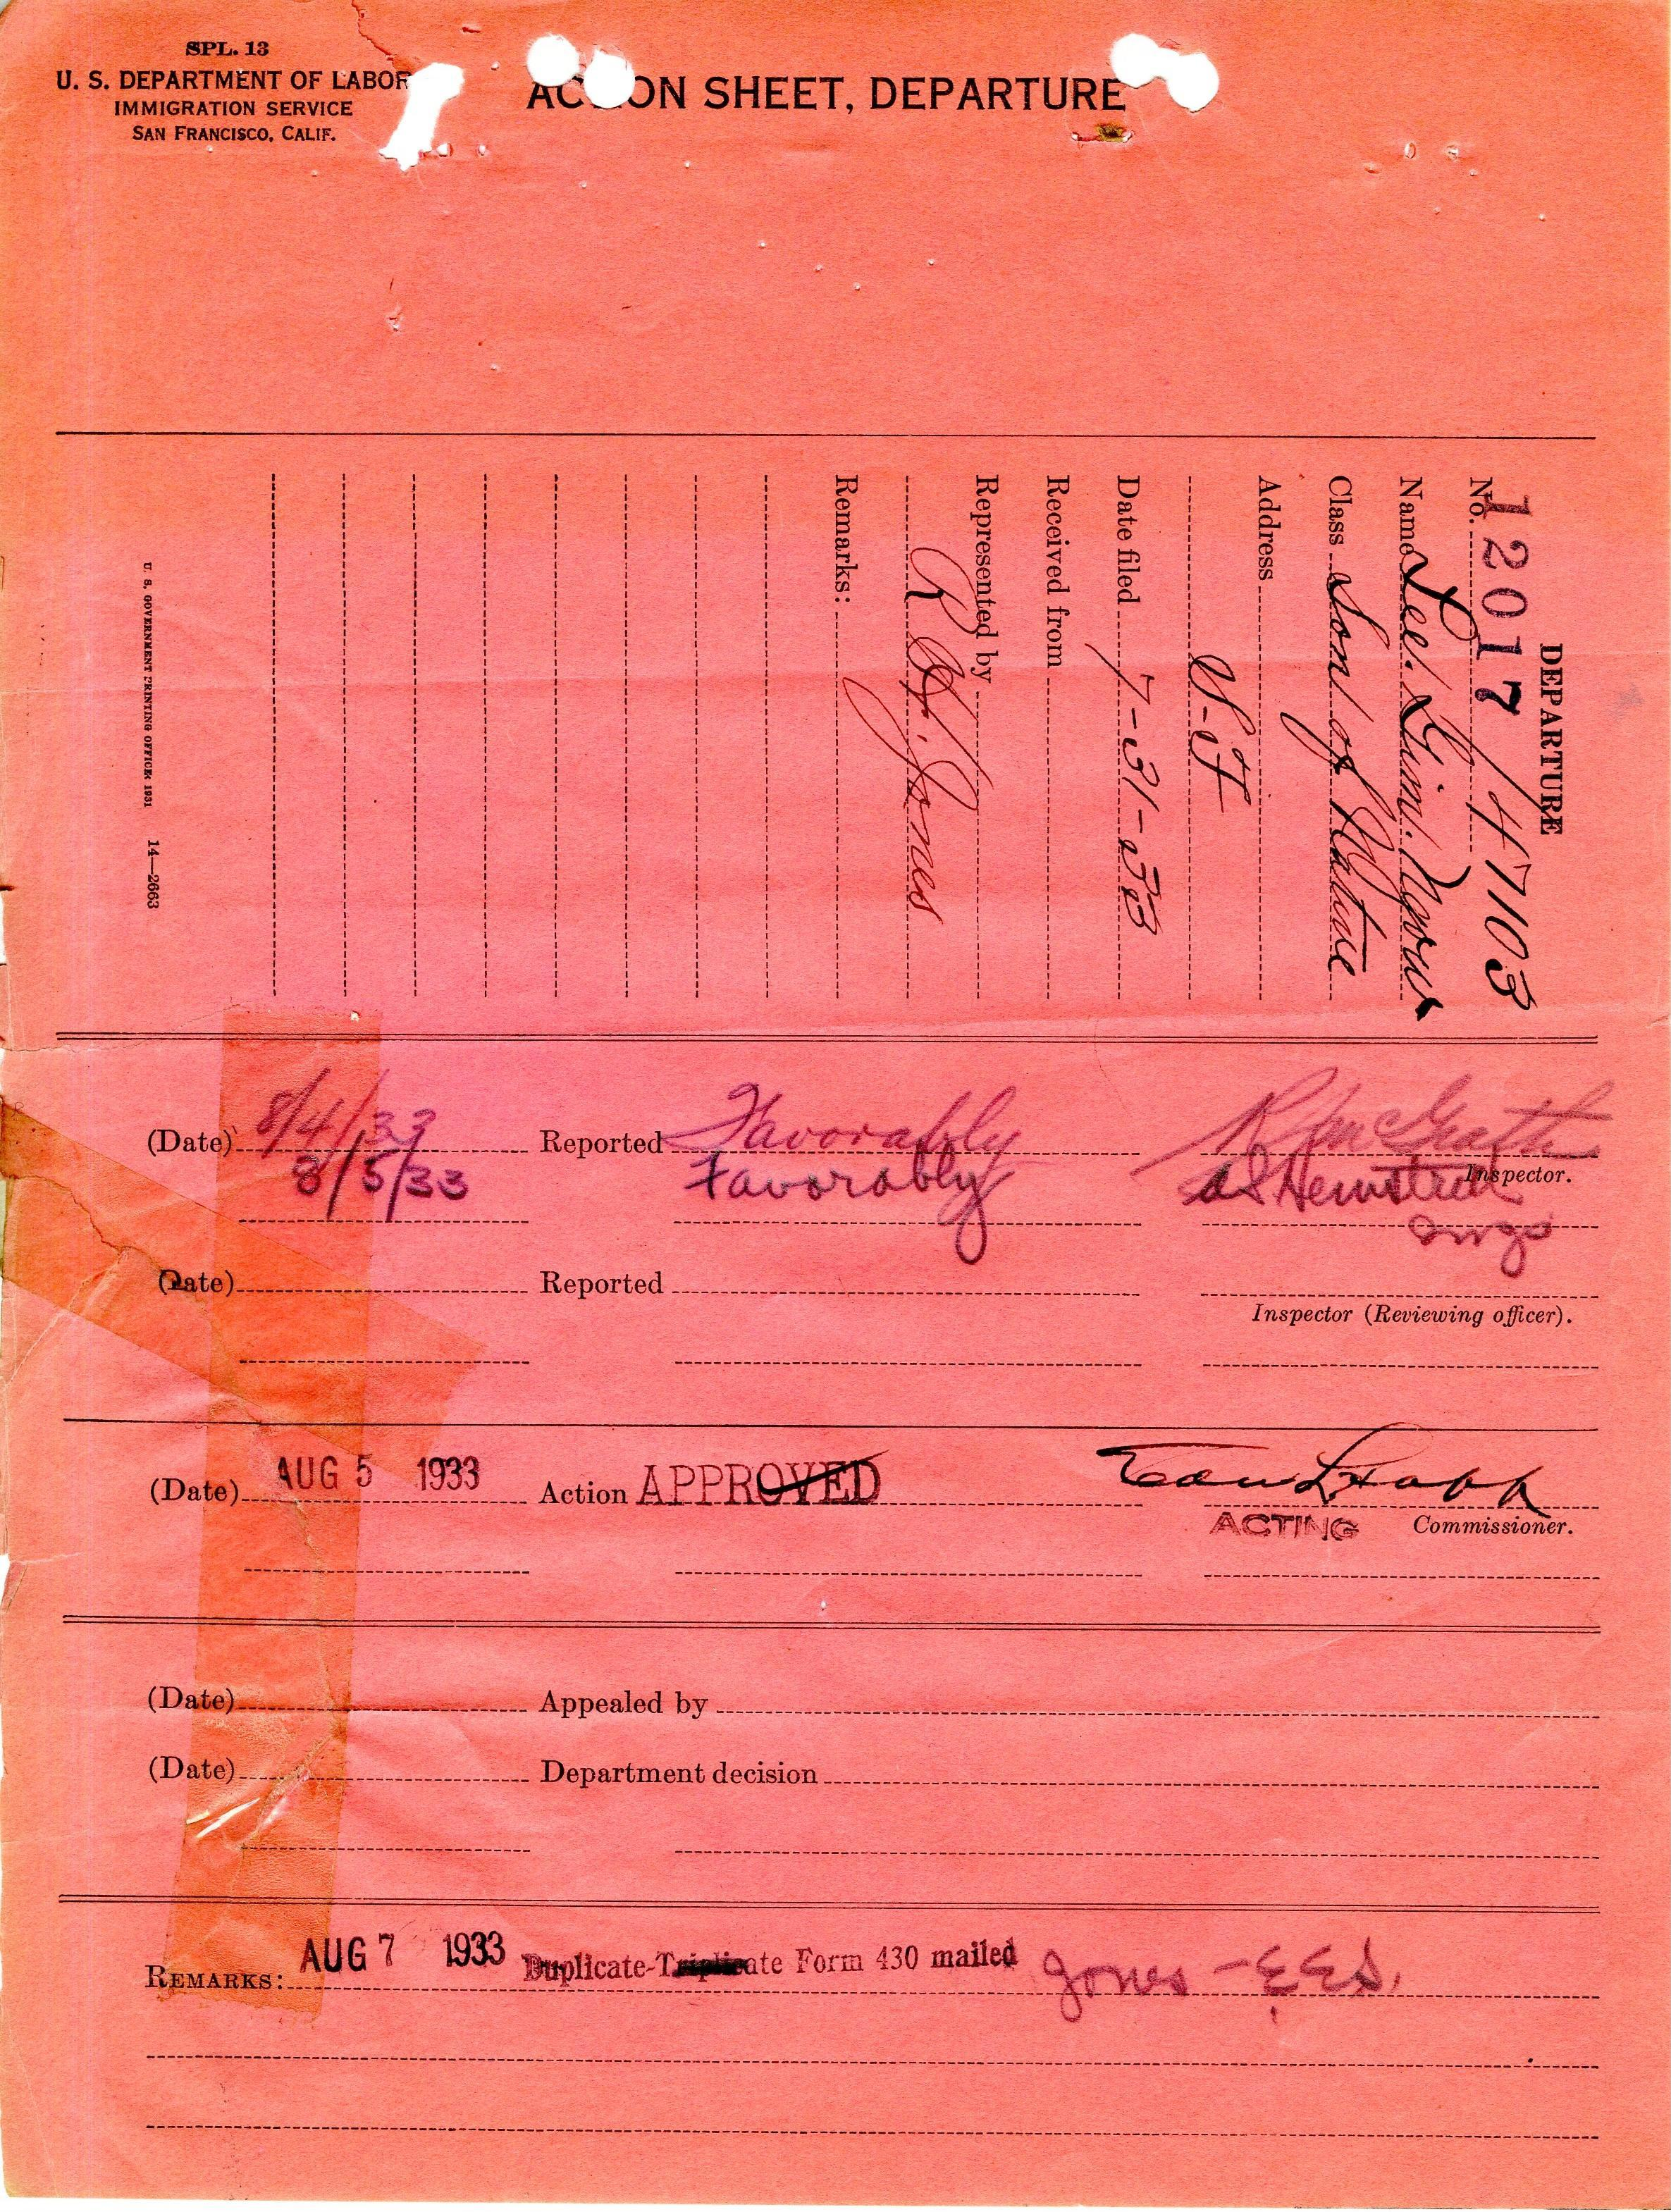 SPL. 13
U. S. DEPARTMENT OF LABOR
IMMIGRATION SERVICE
SAN FRANCISCO, CALIF.
ACTION SHEET, DEPARTURE
DEPARTURE
No. 12017/47103
Name Lee Gim Ngow
Class Son of Native
Address
S-F
Date filed 7-31-33
Received from
Represented by
R H. Jones
Remarks:
U. S. GOVERNMENT PRINTING OFFICE: 1931 14—2663
(Date) 8/4/33 Reported Favorably McGrath
Inspector.
8/5/33 Favorably
(Date) Reported
Inspector (Reviewing officer).
(Date) AUG 5 1933 Action APPROVED
ACTING Commissioner.
(Date) Appealed by
(Date) Department decision
REMARKS: AUG 7 1933 Duplicate-Triplicate Form 430 mailed Jones -